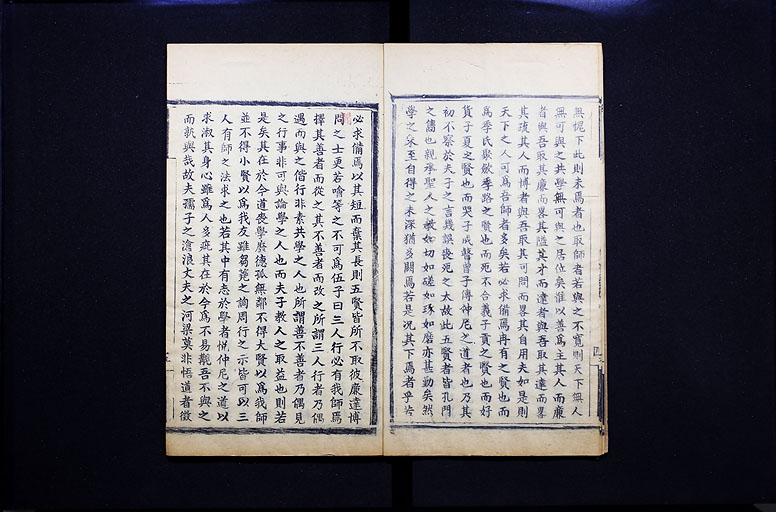 無愧下此則未焉者也取師者若與之不寬則天下無人
無可與之共學無可與之居位矣惟以善爲主其人而廉
者與吾取其廉而畧其隘其才而達者與吾取其達而畧
其疏其人而博者與吾取其可問而畧其自用夫如是則
天下之人可爲吾師者多矣若必求備焉冉有之賢也而
爲季氏聚斂季路之賢也而死不合義子貢之賢也而好
貨子夏之賢也而哭子成瞽曾子傳仲尼之道者也乃其
初不察於夫子之言幾誤喪死之大故此五賢者皆孔門
之儁也親承聖人之教如切如磋如琢如磨亦甚勤矣然
學之未至自得之未深猶多闕焉若是况其下焉者乎若
必求備焉以其短而棄其長則五賢皆所不取彼廉達博
問之士更若噲等之不可爲伍子曰三人行必有我師焉
擇其善者而從之其不善者而改之所謂三人行者乃偶
遇而與之偕行非素共學之人也所謂善不善者乃偶見
之行事非可與論學之人也而夫子教人之取益也則若
是矣其在於今道喪學廢德孤無鄰不得大賢以爲我師
並不得小賢以爲我友雖芻蕘之詢周行之示皆可以三
人有師之法求之也若其中有志於學者悅仲尼之道以
求淑其身心雖爲人多疵其在於今爲不易覯吾不與之
而孰與哉故夫孺子之滄浪丈夫之河梁莫非悟道者徵